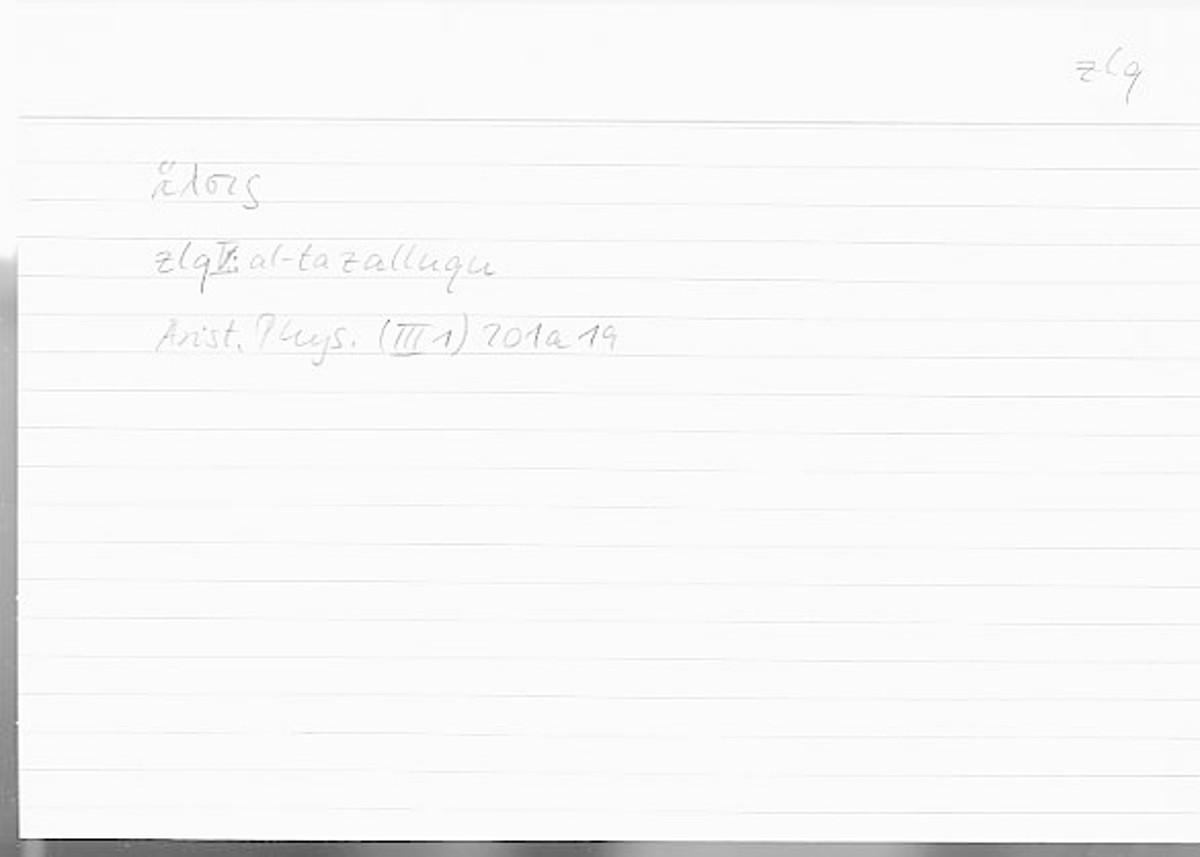 zlq
ἅλσις
zlq V: al-tazalluqu
Arist. Phys. (III 1) 201a 19